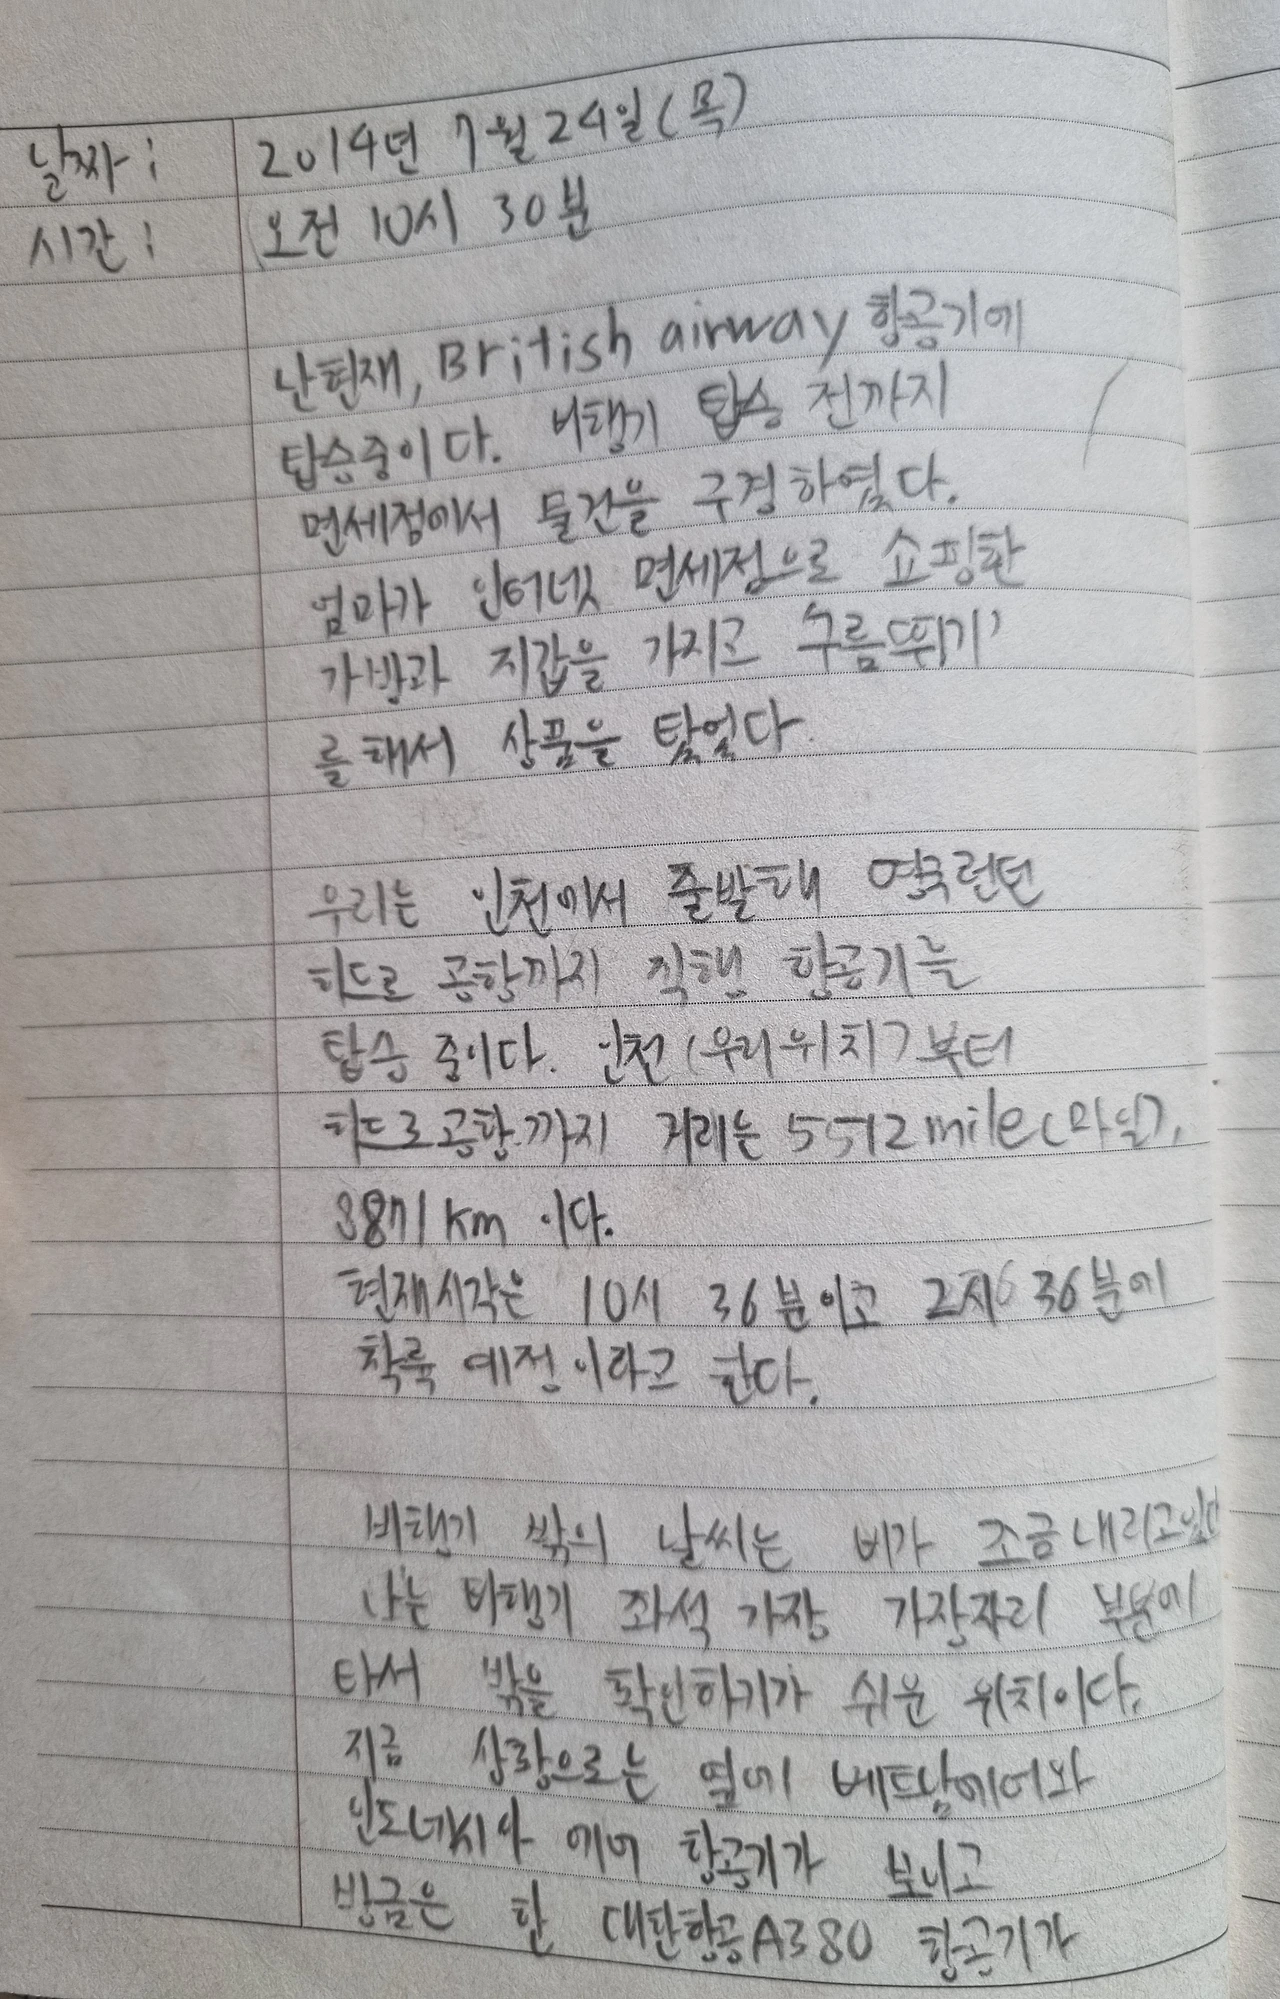 날짜: 2014년 7월 24일(목)
시간: 오전 10시 30분
난현재, British airway 항공기에
탑승중이다. 비행기 탑승 전까지
면세점에서 물건을 구경하였다.
엄마가 인터넷 면세점으로 쇼핑한
가방과 지갑을 가지고 '구름뛰기'
를해서 상품을 탔었다.
우리는 인천에서 출발해 영국런던
히드로 공항까지 직행 항공기는
탑승 중이다. 인천(우리위치)부터
히드로공항까지 거리는 5572mile(마일),
8871km 이다.
현재시각은 10시 36분이고 2시 36분에
착륙 예정이라고 한다.
비행기 밖의 날씨는 비가 조금내리고있다
나는 비행기 좌석 가장 가장자리 부분에
타서 밖을 확인하기가 쉬운 위치이다.
지금 상황으로는 옆에 베트남에어와
인도네시아 에어 항공기가 보이고
방금은 한 대한항공A380 항공기가